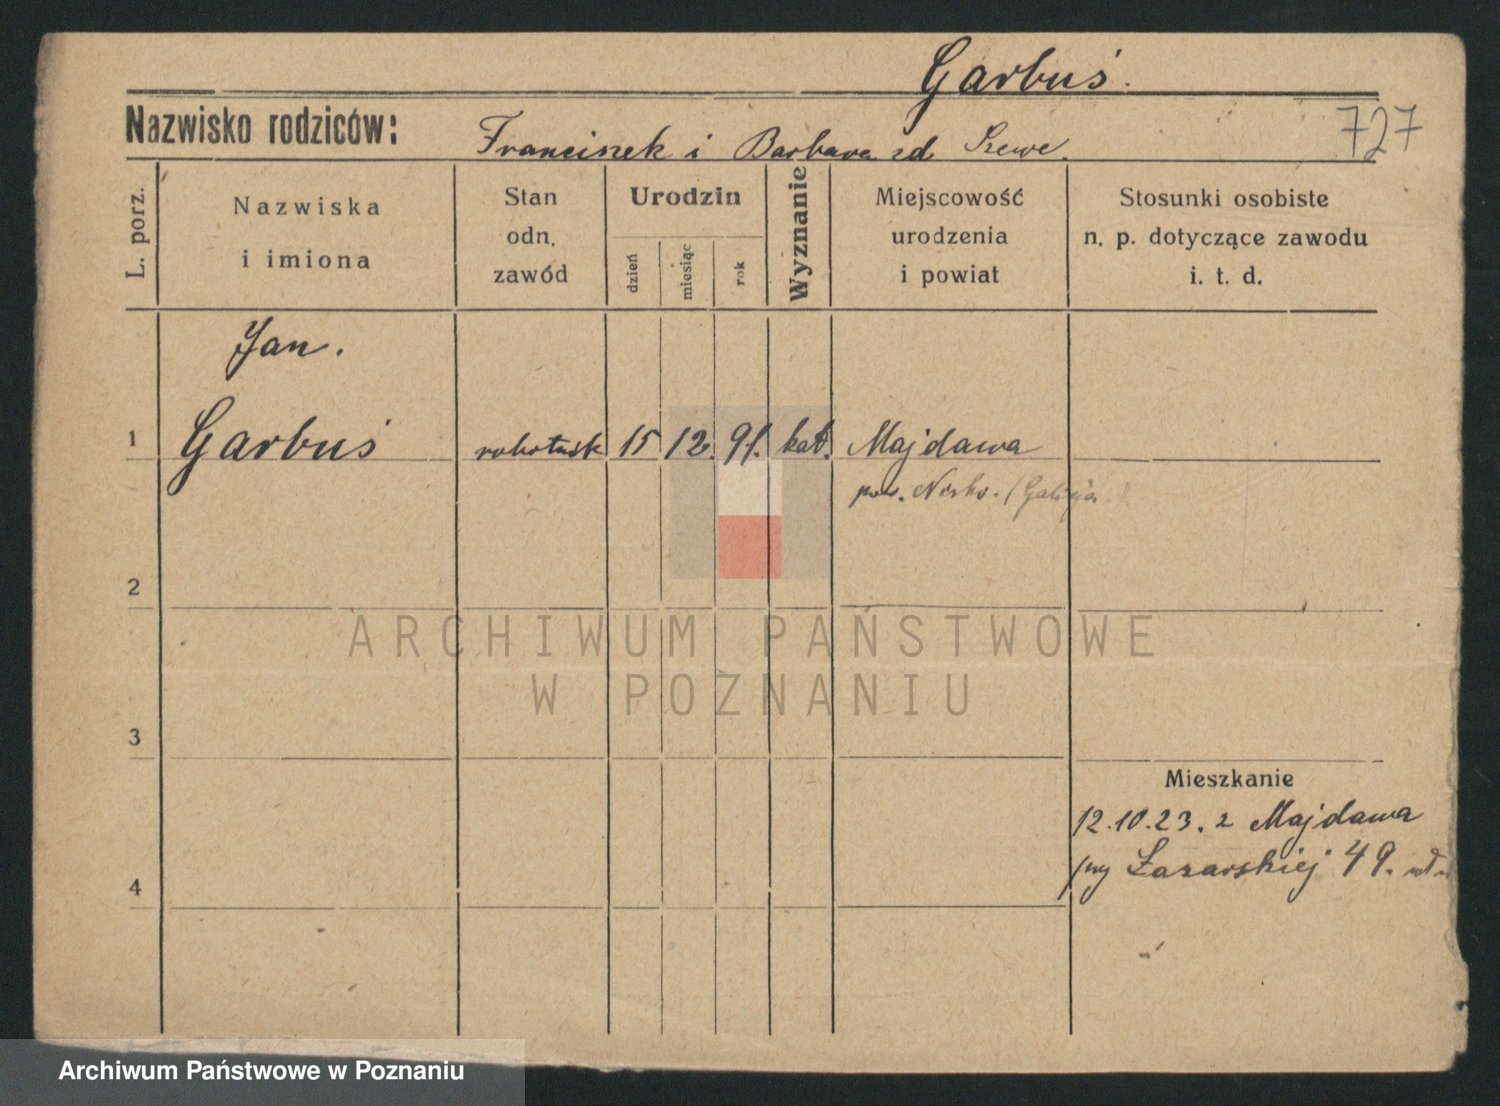 Garbuś.
727
Nazwisko rodziców: Franciszek i Barbara zd Szewc.
L. porz.
Nazwiska
i imiona
Stan
odn.
zawód
Urodzin
dzień
miesiąc
rok
Wyznanie
Miejscowość
urodzenia
i powiat
Stosunki osobiste
n. p. dotyczące zawodu
i. t. d.
Jan.
1 Garbuś robotnik 15 12. 91. kat. Majdawa
pow. Nisko. (Galicja)
2
ARCHIWUM PAŃSTWOWE
W POZNANIU
3
Mieszkanie
12.10.23. z Majdawa
4
przy Łazarskiej 49.
Archiwum Państwowe w Poznaniu